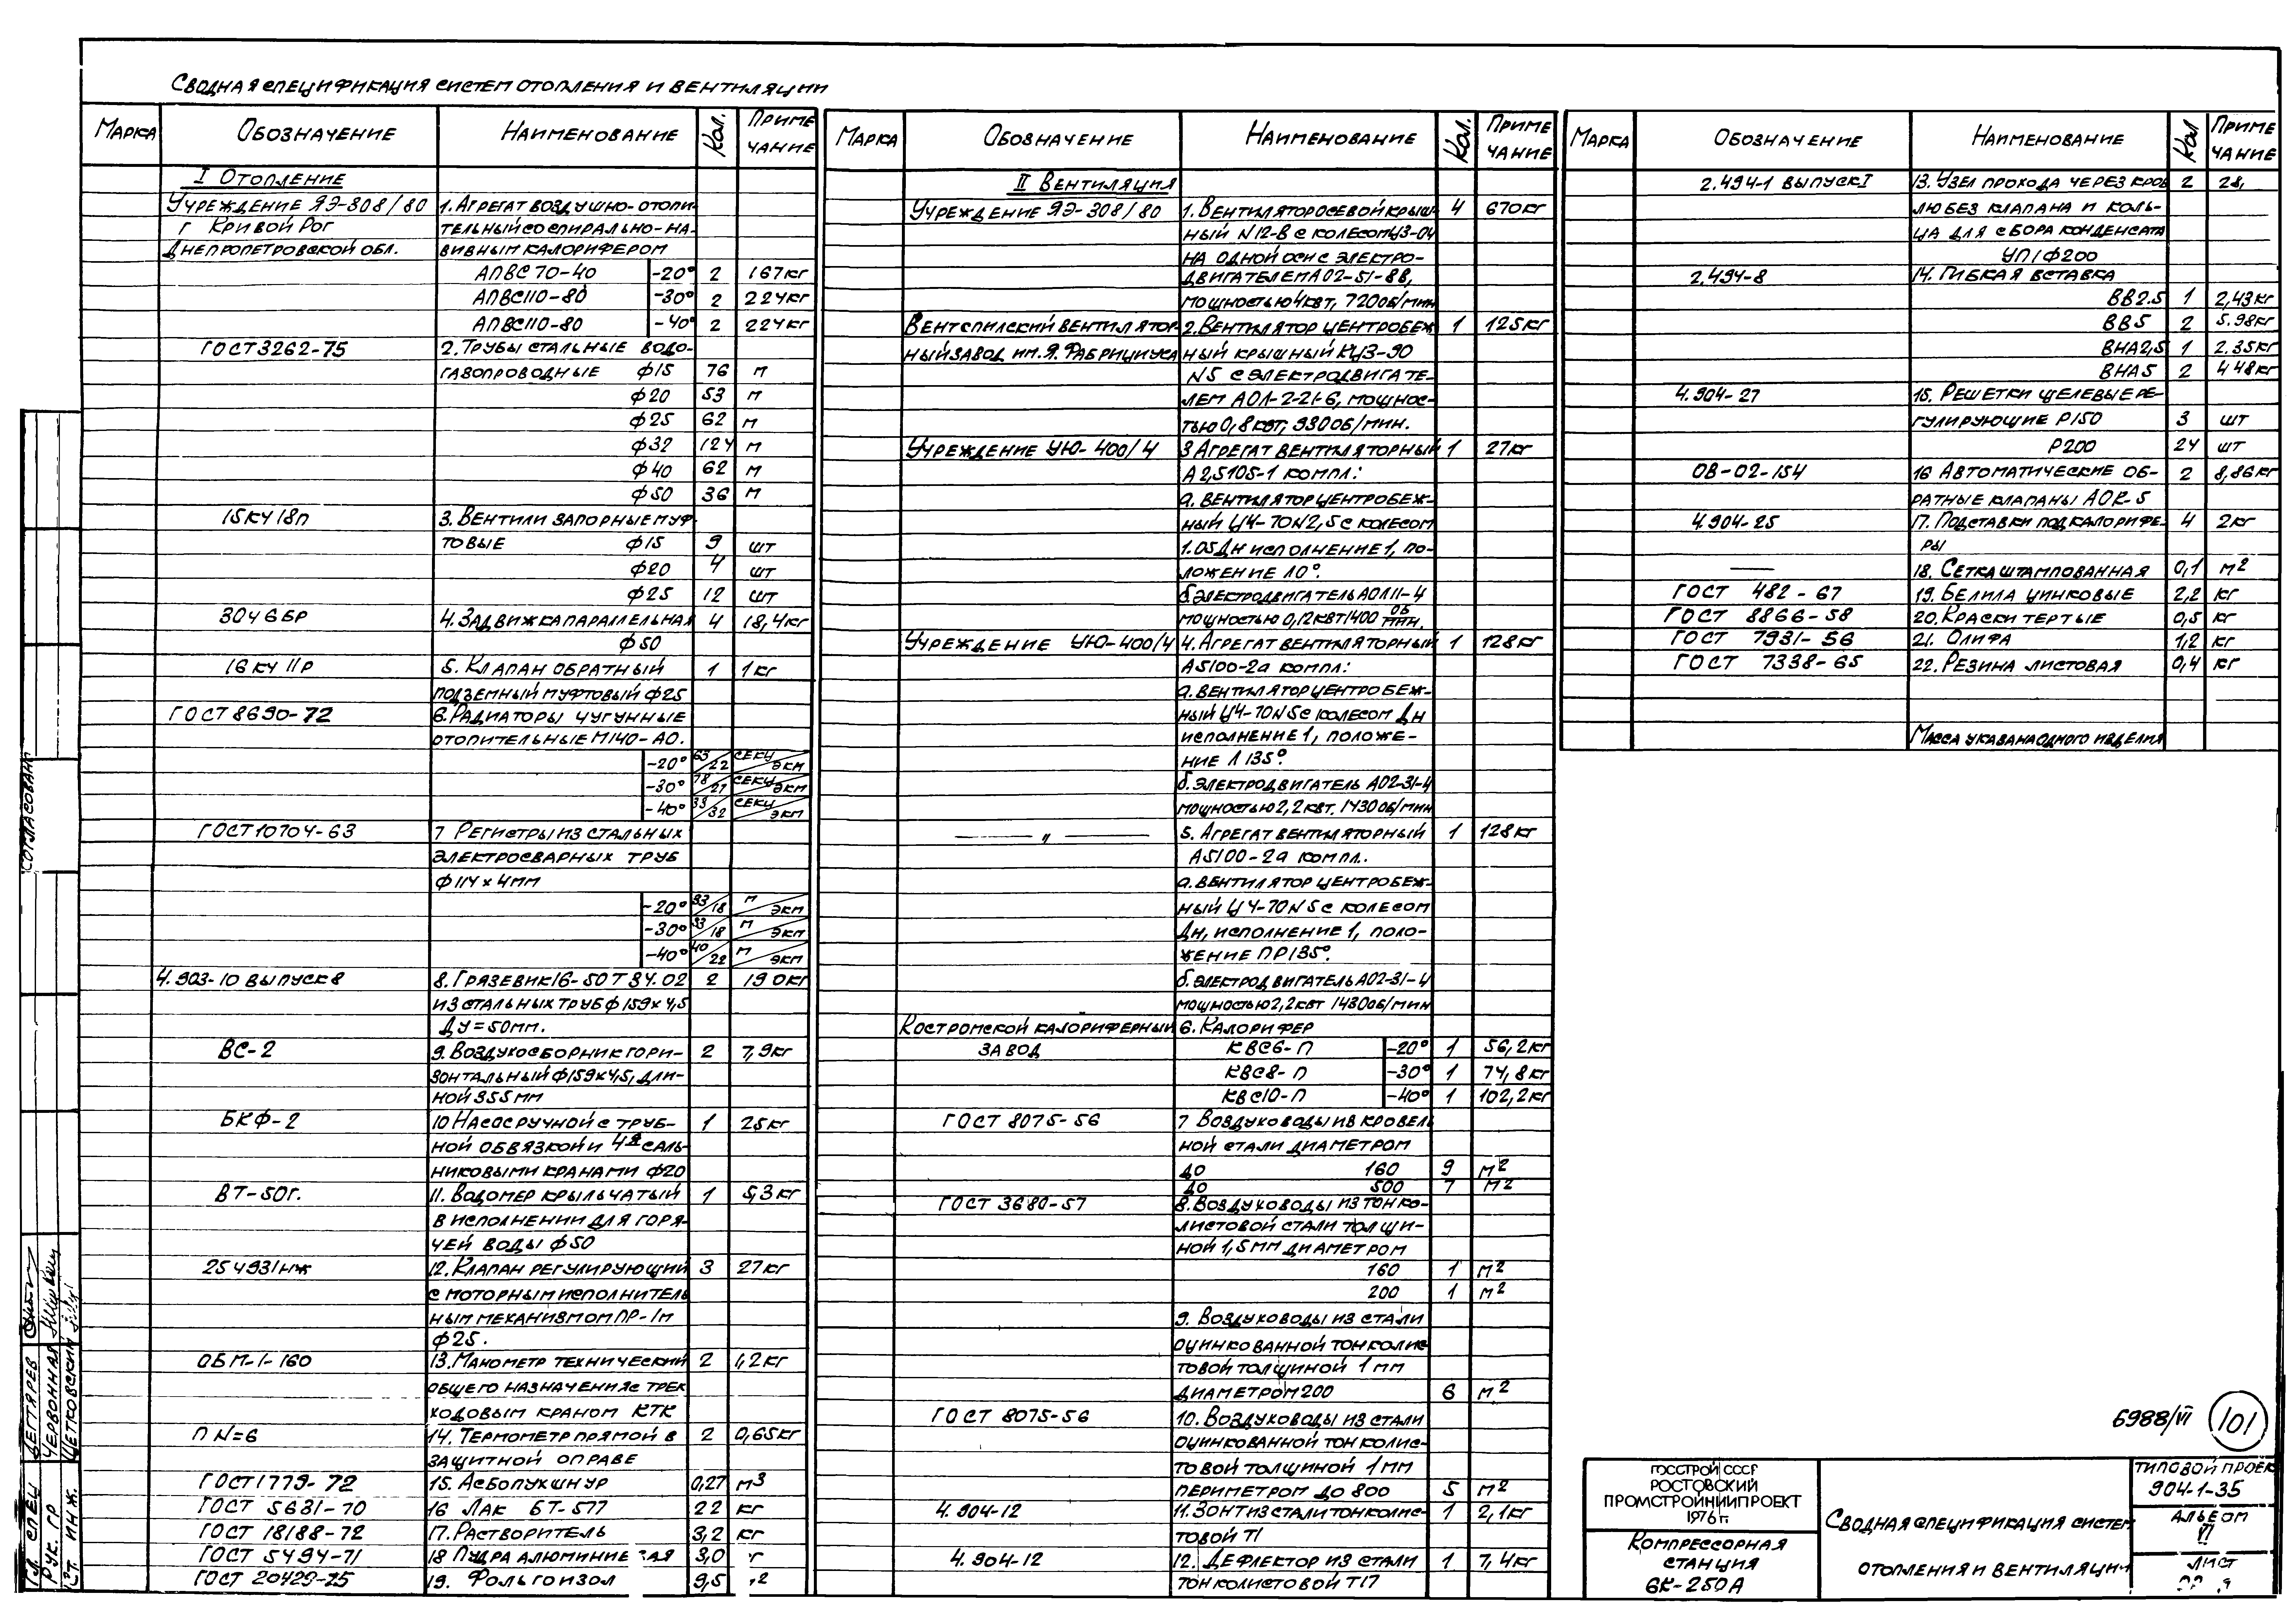 Сводная спецификация систем отопления и вентиляции
Марка Обозначение Наименование Кол. Примечание
I Отопление
Учреждение ЯЭ-308/80 1. Агрегат воздушно-отопи-
г Кривой Рог тельный со спирально-на-
Днепропетровской обл. вивным калорифером
АПВС 70-40 -20° 2 167кг
АПВС110-80 -30° 2 224кг
АПВС110-80 -40° 2 224кг
ГОСТ3262-75 2. Трубы стальные водо-
газопроводные ф15 76 м
ф20 53 м
ф25 62 м
ф32 124 м
ф40 62 м
ф50 36 м
15кч18п 3. Вентили запорные муф-
товые ф15 9 шт
ф20 4 шт
ф25 12 шт
30ч6бр 4. Задвижка параллельная 4 18,4кг
ф50
16кч11р 5. Клапан обратный 1 1кг
подъемный муфтовый ф25
ГОСТ8690-72 6. Радиаторы чугунные
отопительные М140-АО.
-20° 63/22 секц/экм
-30° 78/27 секц/экм
-40° 93/32 секц/экм
ГОСТ10704-63 7 Регистры из стальных
электросварных труб
ф114×4мм
-20° 33/18 м/экм
-30° 33/18 м/экм
-40° 40/22 м/экм
4.903-10 выпуск 8 8. Грязевик 16-50 Т 34.02 2 190кг
из стальных труб ф159×4,5
Ду=50мм.
ВС-2 9. Воздухосборник гори- 2 7,9кг
зонтальный ф159×4,5, дли-
ной 355мм
БКФ-2 10 Насос ручной с труб- 1 25кг
ной обвязкой и 4я саль-
никовыми кранами ф20
ВТ-50г. 11. Водомер крыльчатый 1 5,3кг
в исполнении для горя-
чей воды ф50
25ч931нж 12. Клапан регулирующий 3 27кг
с моторным исполнитель
ным механизмом ПР-1м
ф25.
ОБМ-1-160 13. Манометр технический 2 1,2кг
общего назначения с трех
ходовым краном КТК
П N=6 14. Термометр прямой в 2 0,65кг
защитной оправе
ГОСТ1779-72 15. Асбопухшнур 0,27 м3
ГОСТ 5631-70 16 Лак БТ-577 22 кг
ГОСТ 18188-72 17. Растворитель 3,2 кг
ГОСТ 5494-71 18 Пудра алюминие вая 3,0 г
ГОСТ 20429-75 19. Фольгоизол 9,5 2
Марка Обозначение Наименование Кол. Примечание
II Вентиляция
Учреждение ЯЭ-308/80 1. Вентилятор осевой крыш- 4 670кг
ный N12-В с колесом ЦЗ-04
на одной оси с электро-
двигателем АО2-51-8В,
мощностью 4квт, 720об/мин
Вентспилский вентилятор- 2. Вентилятор центробеж 1 125кг
ный завод им. Я. Фабрициуса ный крышный КЦЗ-90
N5 с электродвигате-
лем АОЛ-2-21-6, мощнос-
тью 0,8квт, 930об/мин.
Учреждение УЮ-400/4 3 Агрегат вентиляторный 1 27кг
А2,5105-1 компл:
а. вентилятор центробеж-
ный Ц4-70N2,5 с колесом
1.05Дн исполнение 1, по-
ложение Л0°.
б. электродвигатель АОЛ11-4
мощностью 0,12квт 1400 об/мин.
Учреждение УЮ-400/4 4. Агрегат вентиляторный 1 128кг
А5100-2а компл:
а. вентилятор центробеж-
ный Ц4-70N5 с колесом Дн
исполнение 1, положе-
ние Л 135°.
б. электродвигатель АО2-31-4
мощностью 2,2квт. 1430об/мин
— „ — 5. Агрегат вентиляторный 1 128кг
А5100-2а компл.
а. вентилятор центробеж-
ный Ц4-70N5 с колесом
Дн, исполнение 1, поло-
жение ПР135°.
б. электродвигатель АО2-31-4
мощностью 2,2квт 1430об/мин
Костромской калориферный 6. Калорифер
завод КВС6-П -20° 1 56,2кг
КВС8-П -30° 1 74,8кг
КВС10-П -40° 1 102,2кг
ГОСТ 8075-56 7 Воздуховоды из кровель
ной стали диаметром
до 160 9 м2
до 500 7 м2
ГОСТ 3680-57 8. Воздуховоды из тонко-
листовой стали толщи-
ной 1,5мм диаметром
160 1 м2
200 1 м2
9. Воздуховоды из стали
оцинкованной тонколис
товой толщиной 1мм
диаметром 200 6 м2
ГОСТ 8075-56 10. Воздуховоды из стали
оцинкованной тонколис-
товой толщиной 1мм
периметром до 800 5 м2
4.904-12 11. Зонт из стали тонколис- 1 2,1кг
товой Т1
4.904-12 12. Дефлектор из стали 1 7,4кг
тонколистовой Т17
Марка Обозначение Наименование Кол Примечание
2.494-1 выпуск I 13. Узел прохода через кров 2 28,
лю без клапана и коль-
ца для сбора конденсата
УП1ф200
2.494-8 14. Гибкая вставка
ВВ2.5 1 2,43кг
ВВ5 2 5.98кг
ВНА2,5 1 2.35кг
ВНА5 2 4 48кг
4.904-27 15. Решетки щелевые ре-
гулирующие Р150 3 шт
Р200 24 шт
ОВ-02-154 16 Автоматические об- 2 8,86кг
ратные клапаны АОК-5
4.904-25 17. Подставки под калорифе- 4 2кг
ры
— 18. Сетка штампованная 0,1 м2
ГОСТ 482-67 19. Белила цинковые 2,2 кг
ГОСТ 8866-58 20. Краски тертые 0,5 кг
ГОСТ 7931-56 21. Олифа 1,2 кг
ГОСТ 7338-65 22. Резина листовая 0,4 кг
Масса указана одного изделия
6988/VI 101
Госстрой СССР
Ростовский
Промстройниипроект
1976 г.
Компрессорная
станция
6К-250А
Сводная спецификация систем
отопления и вентиляции
Типовой проек
904-1-35
Альбом
VI
Лист
Согласовано
Гл. спец Дегтярев
Рук. гр Червонная
Ст. инж. Цетковский